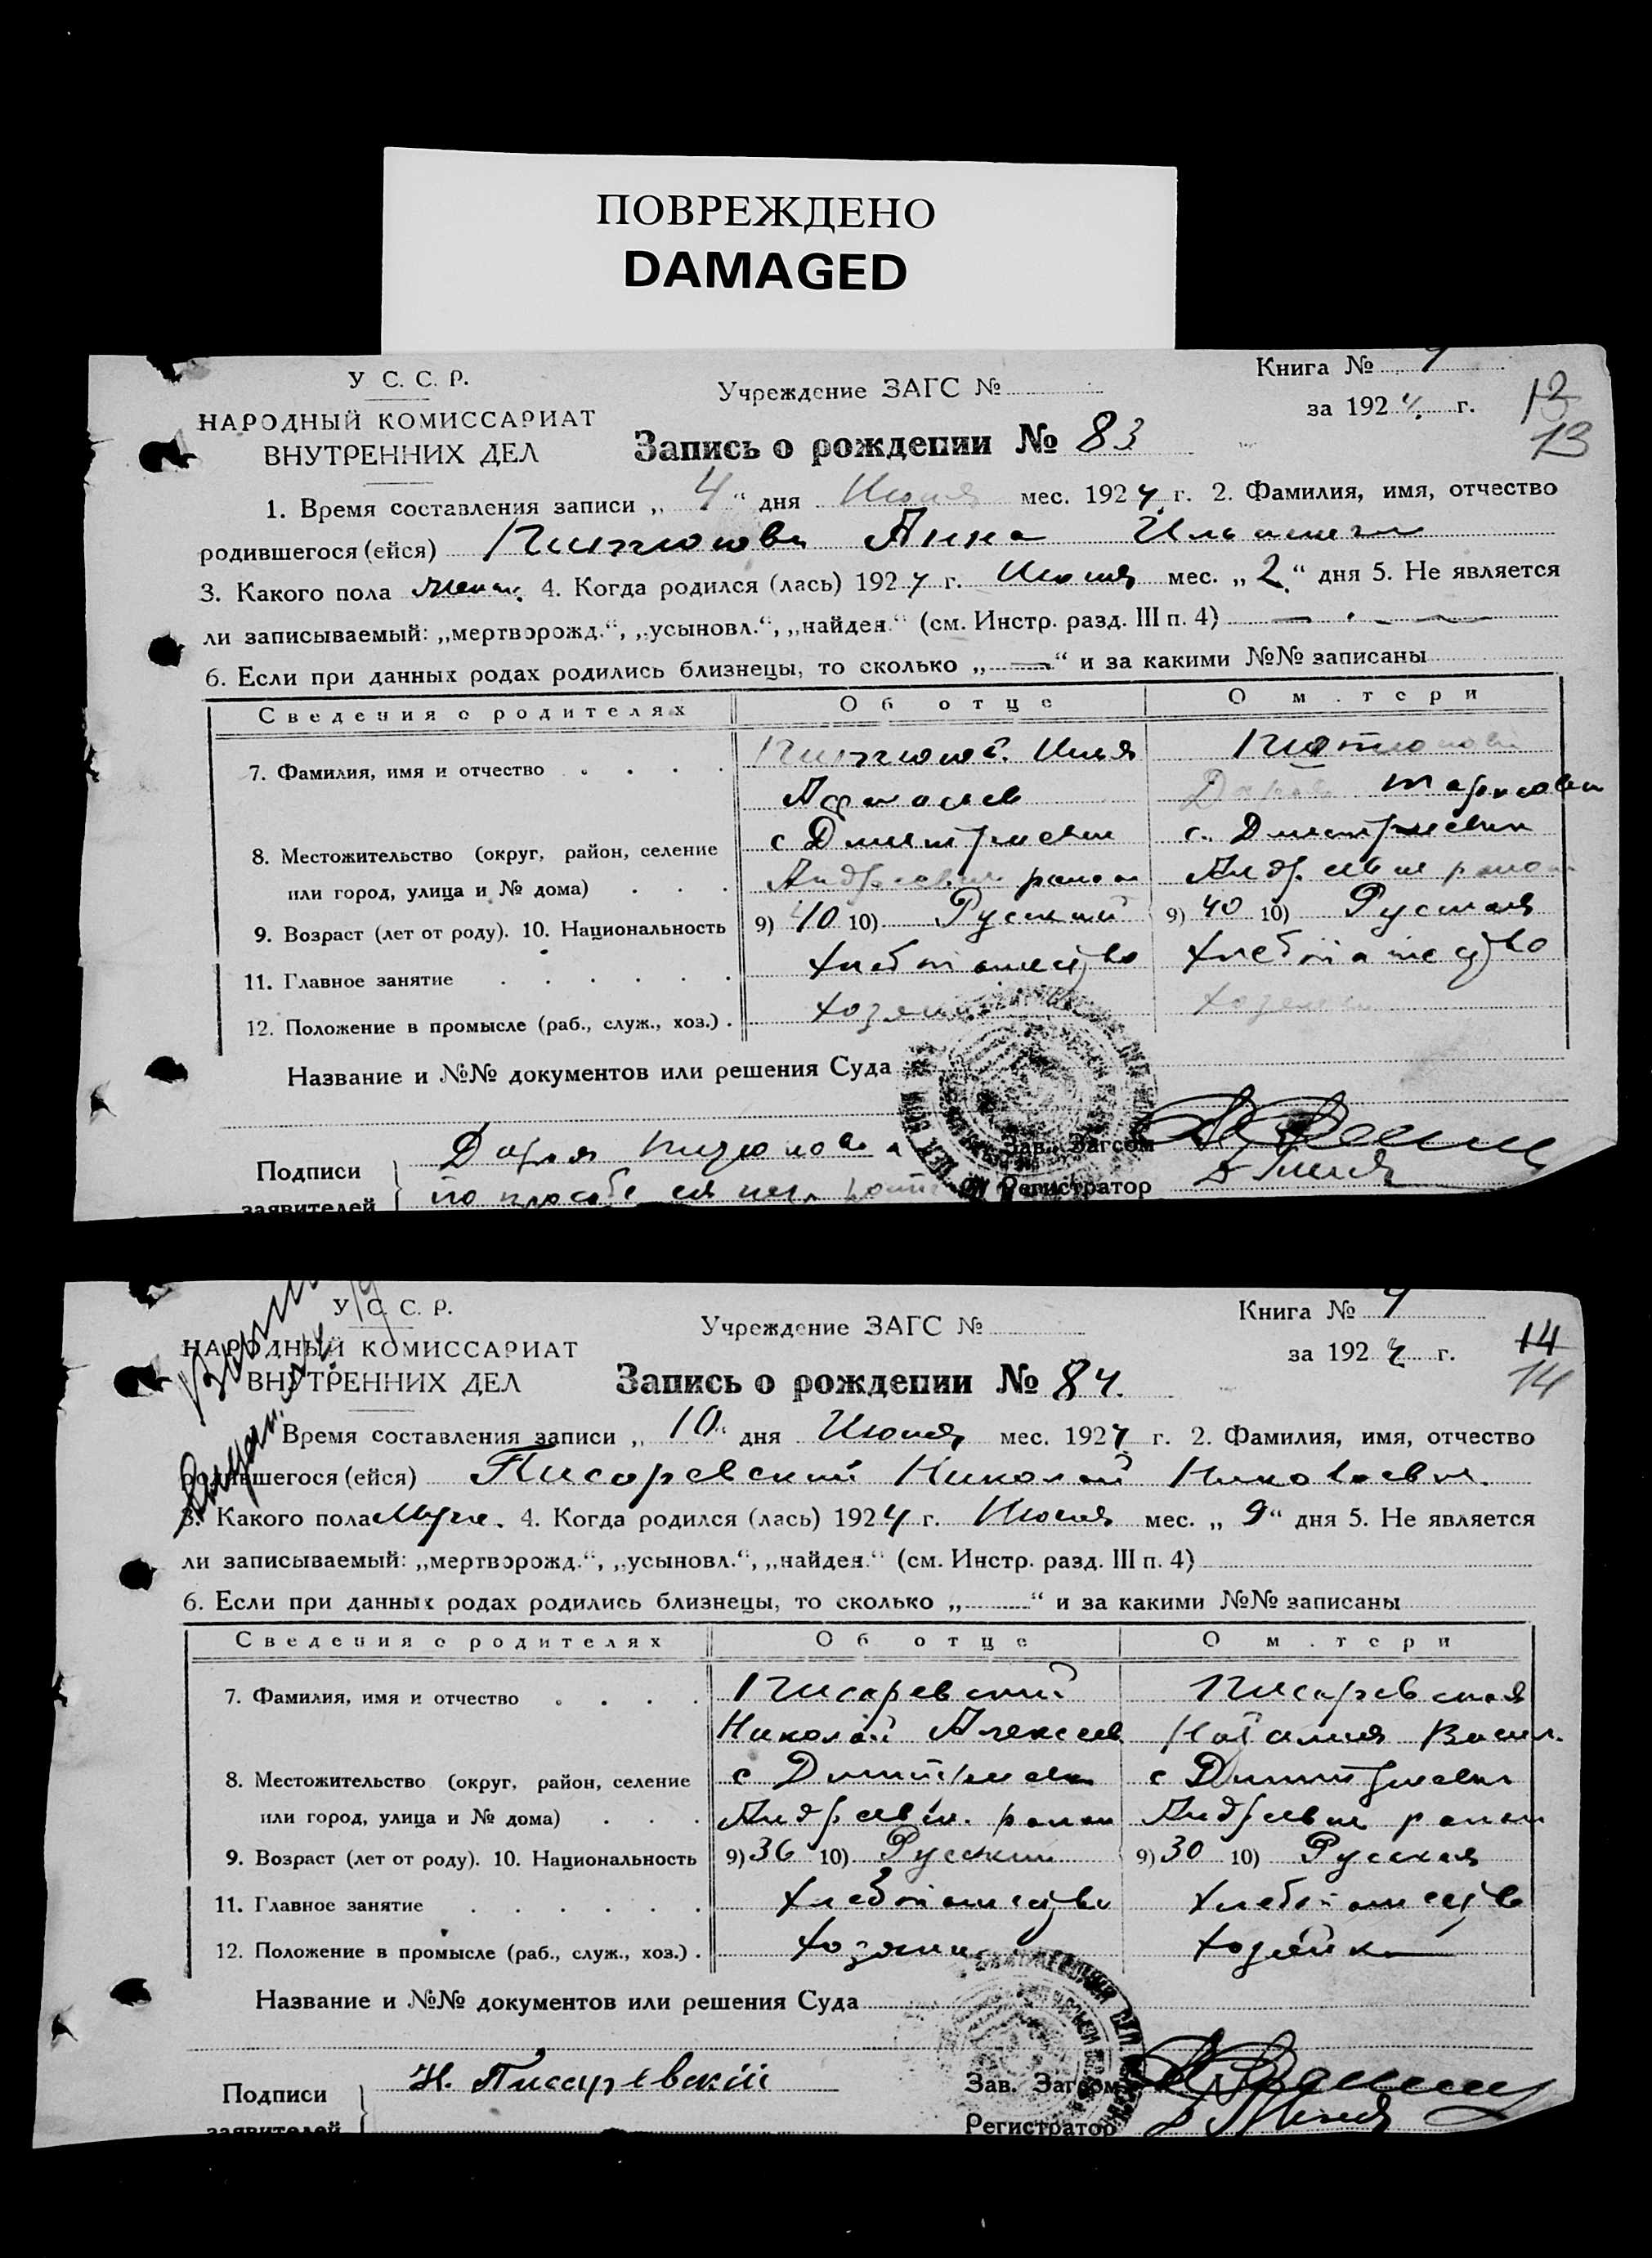 ПОВРЕЖДЕНО
DAMAGED
У С. С. Р.
НАРОДНЫЙ КОМИССАРИАТ
ВНУТРЕННИХ ДЕЛ
Учреждение ЗАГС №
Книга №
за 1924 г.
13
13
Запись о рождении № 83
1. Время составления записи „ 4 “ дня Июня мес. 1924 г. 2. Фамилия, имя, отчество
родившегося (ейся) Анна
3. Какого пола женск. 4. Когда родился (лась) 1924 г. Июня мес. „ 2 “ дня 5. Не является
ли записываемый: „мертворожд.“, „усыновл.“, „найден.“ (см. Инстр. разд. III п. 4) —
6. Если при данных родах родились близнецы, то сколько „ — “ и за какими №№ записаны
Сведения о родителях Об отце О м . тери
7. Фамилия, имя и отчество . . . . Илья
8. Местожительство (округ, район, селение с Дмитриевки с. Дмитриевки
или город, улица и № дома) . . . район район
9. Возраст (лет от роду). 10. Национальность 9) 40 10) Русский 9) 40 10) Русская
11. Главное занятие . . . . . . Хлебопашество Хлебопашество
12. Положение в промысле (раб., служ., хоз.) . хозяин
Название и №№ документов или решения Суда
Подписи Дарья
заявителей по
Зав. Загсом
Регистратор
У С. С. Р.
НАРОДНЫЙ КОМИССАРИАТ
ВНУТРЕННИХ ДЕЛ
Учреждение ЗАГС №
Книга №
за 1924 г.
14
14
Запись о рождении № 84.
Время составления записи „ 10 “ дня Июня мес. 1924 г. 2. Фамилия, имя, отчество
родившегося (ейся) Писаревский Николай Николаевич.
3. Какого пола Муж. 4. Когда родился (лась) 1924 г. Июня мес. „ 9 “ дня 5. Не является
ли записываемый: „мертворожд.“, „усыновл.“, „найден.“ (см. Инстр. разд. III п. 4)
6. Если при данных родах родились близнецы, то сколько „ “ и за какими №№ записаны
Сведения о родителях Об отце О м . тери
7. Фамилия, имя и отчество . . . . Писаревский Писаревская
Николай Алексеев Наталия Васил.
8. Местожительство (округ, район, селение с Дмитриевки с Дмитриевки
или город, улица и № дома) . . . Андреевск. район Андреевск район
9. Возраст (лет от роду). 10. Национальность 9) 36 10) Русский 9) 30 10) Русская
11. Главное занятие . . . . . . Хлебопашество Хлебопашество
12. Положение в промысле (раб., служ., хоз.) . хозяин хозяйка
Название и №№ документов или решения Суда
Подписи Н. Писаревский
заявителей
Зав. Загсом
Регистратор